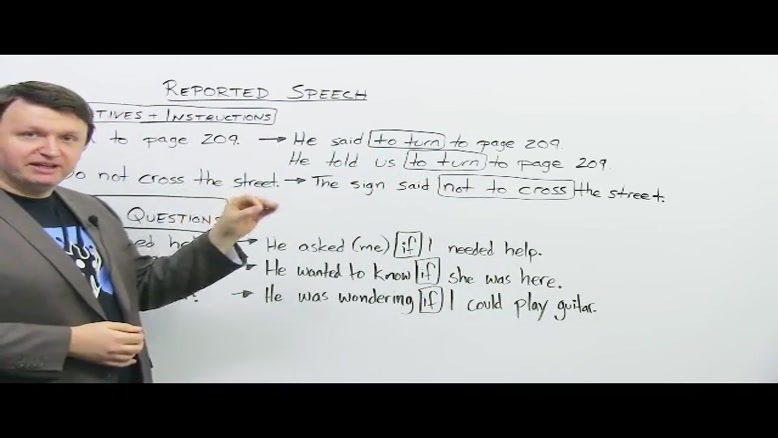 REPORTED SPEECH
TIVES + INSTRUCTIONS
to page 209. → He said to turn to page 209.
He told us to turn to page 209.
Do not cross the street. → The sign said not to cross the street.
QUESTIONS
→ He asked (me) if I needed help.
→ He wanted to know if she was here.
→ He was wondering if I could play guitar.